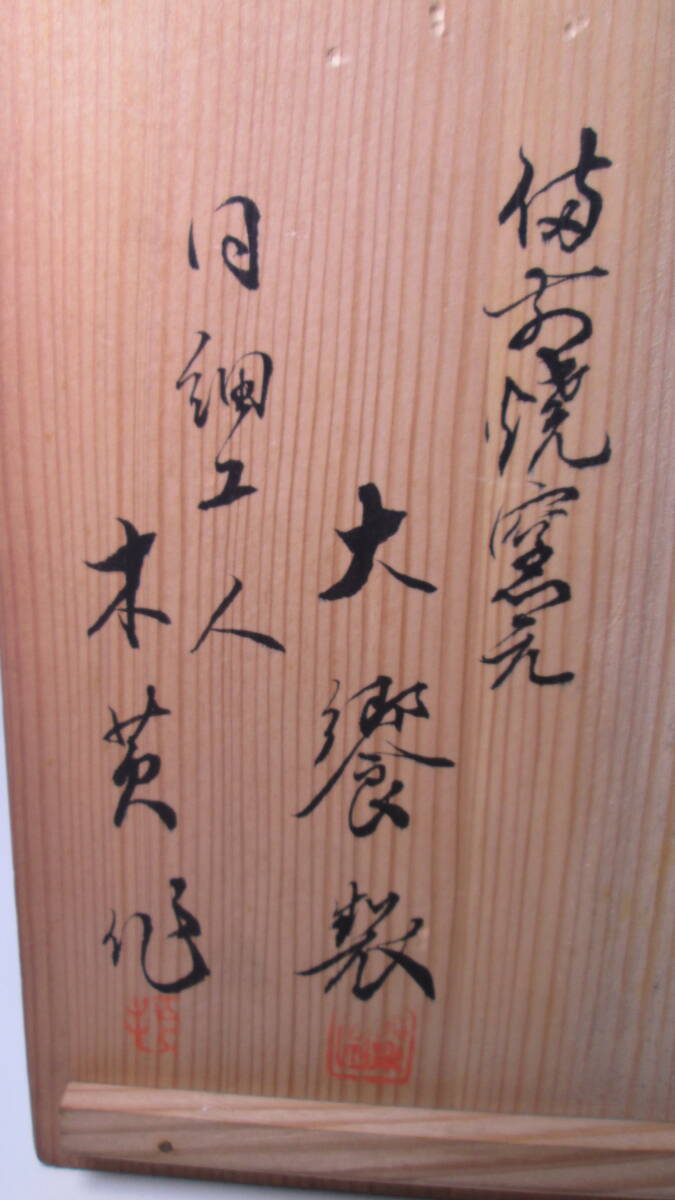 備前焼窯元
大饗製
同細工人
木黄作